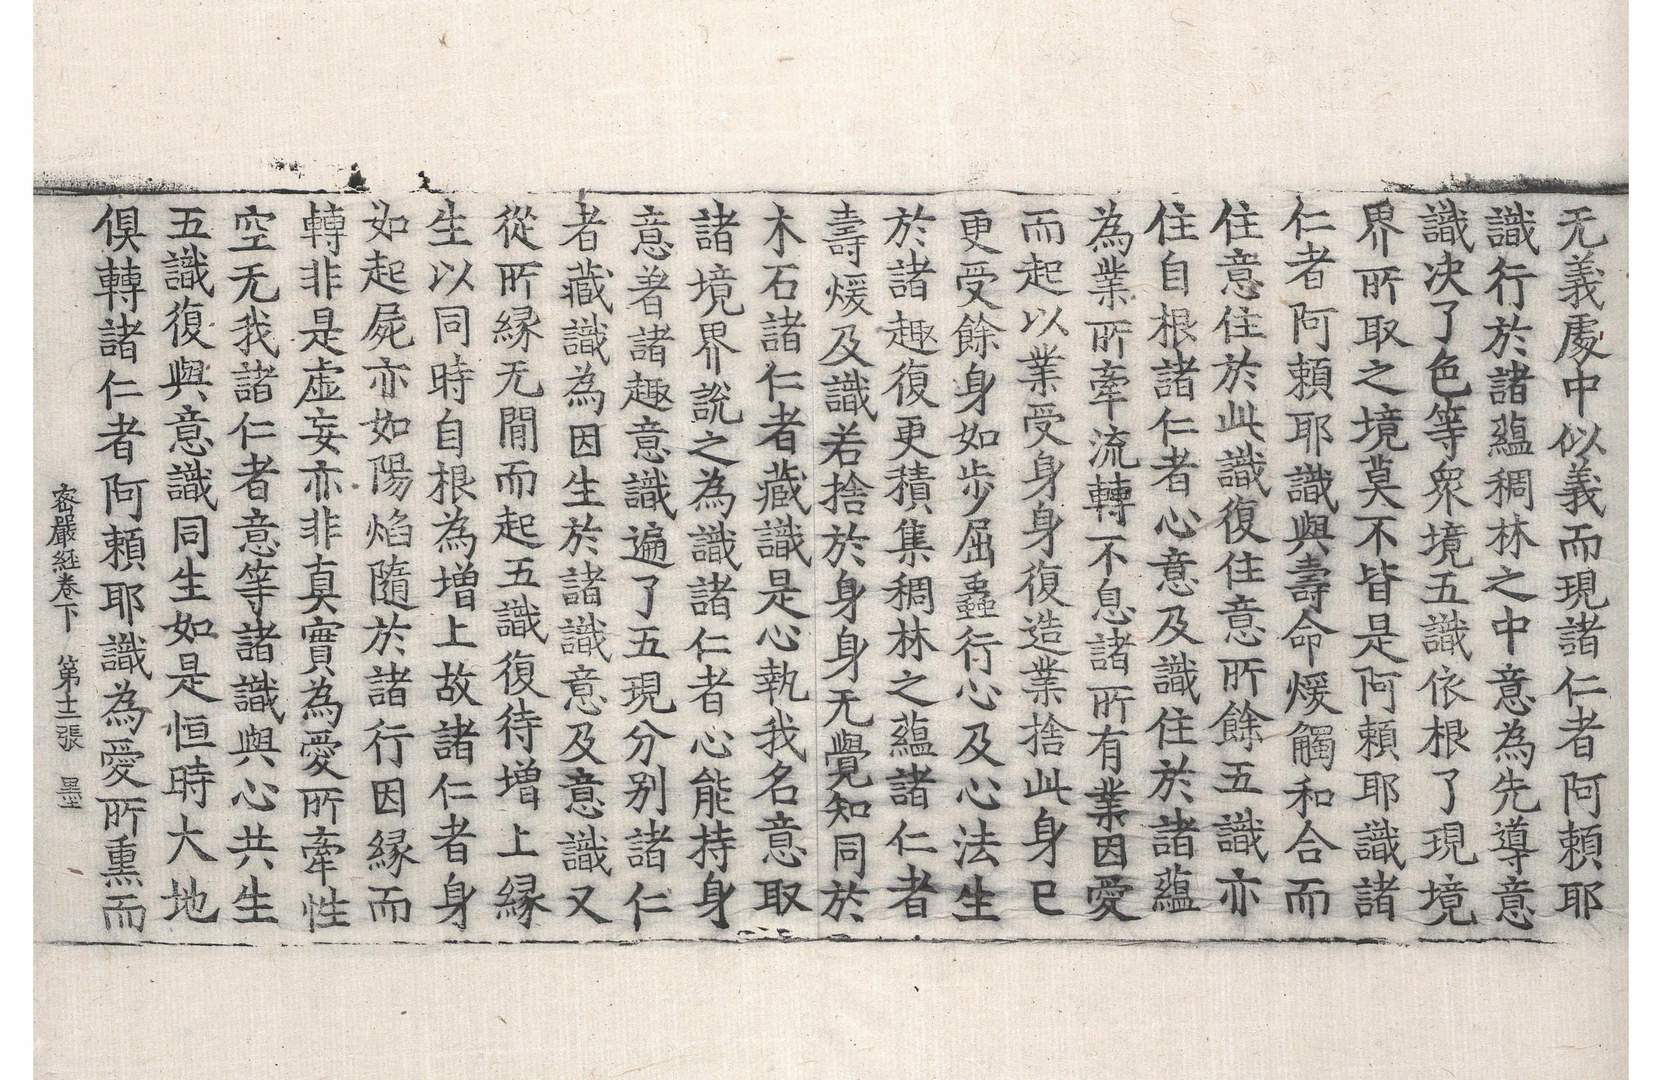 无義處中似義而現諸仁者阿頼耶
識行於諸蘊稠林之中意為先導意
識決了色等衆境五識依根了現境
界所取之境莫不皆是阿頼耶識諸
仁者阿頼耶識與壽命煖觸和合而
住意住於此識復住意所餘五識亦
住自根諸仁者心意及識住於諸蘊
為業所牽流轉不息諸所有業因愛
而起以業受身身復造業捨此身已
更受餘身如步屈蟲行心及心法生
於諸趣復更積集稠林之蘊諸仁者
壽煖及識若捨於身身无覺知同於
木石諸仁者藏識是心執我名意取
諸境界說之為識諸仁者心能持身
意著諸趣意識遍了五現分別諸仁
者藏識為因生於諸識意及意識又
從所縁无間而起五識復待增上縁
生以同時自根為增上故諸仁者身
如起屍亦如陽焰隨於諸行因縁而
轉非是虛妄亦非真實為愛所牽性
空无我諸仁者意等諸識與心共生
五識復與意識同生如是恒時大地
俱轉諸仁者阿頼耶識為愛所熏而
密嚴経卷下 第十二張 墨